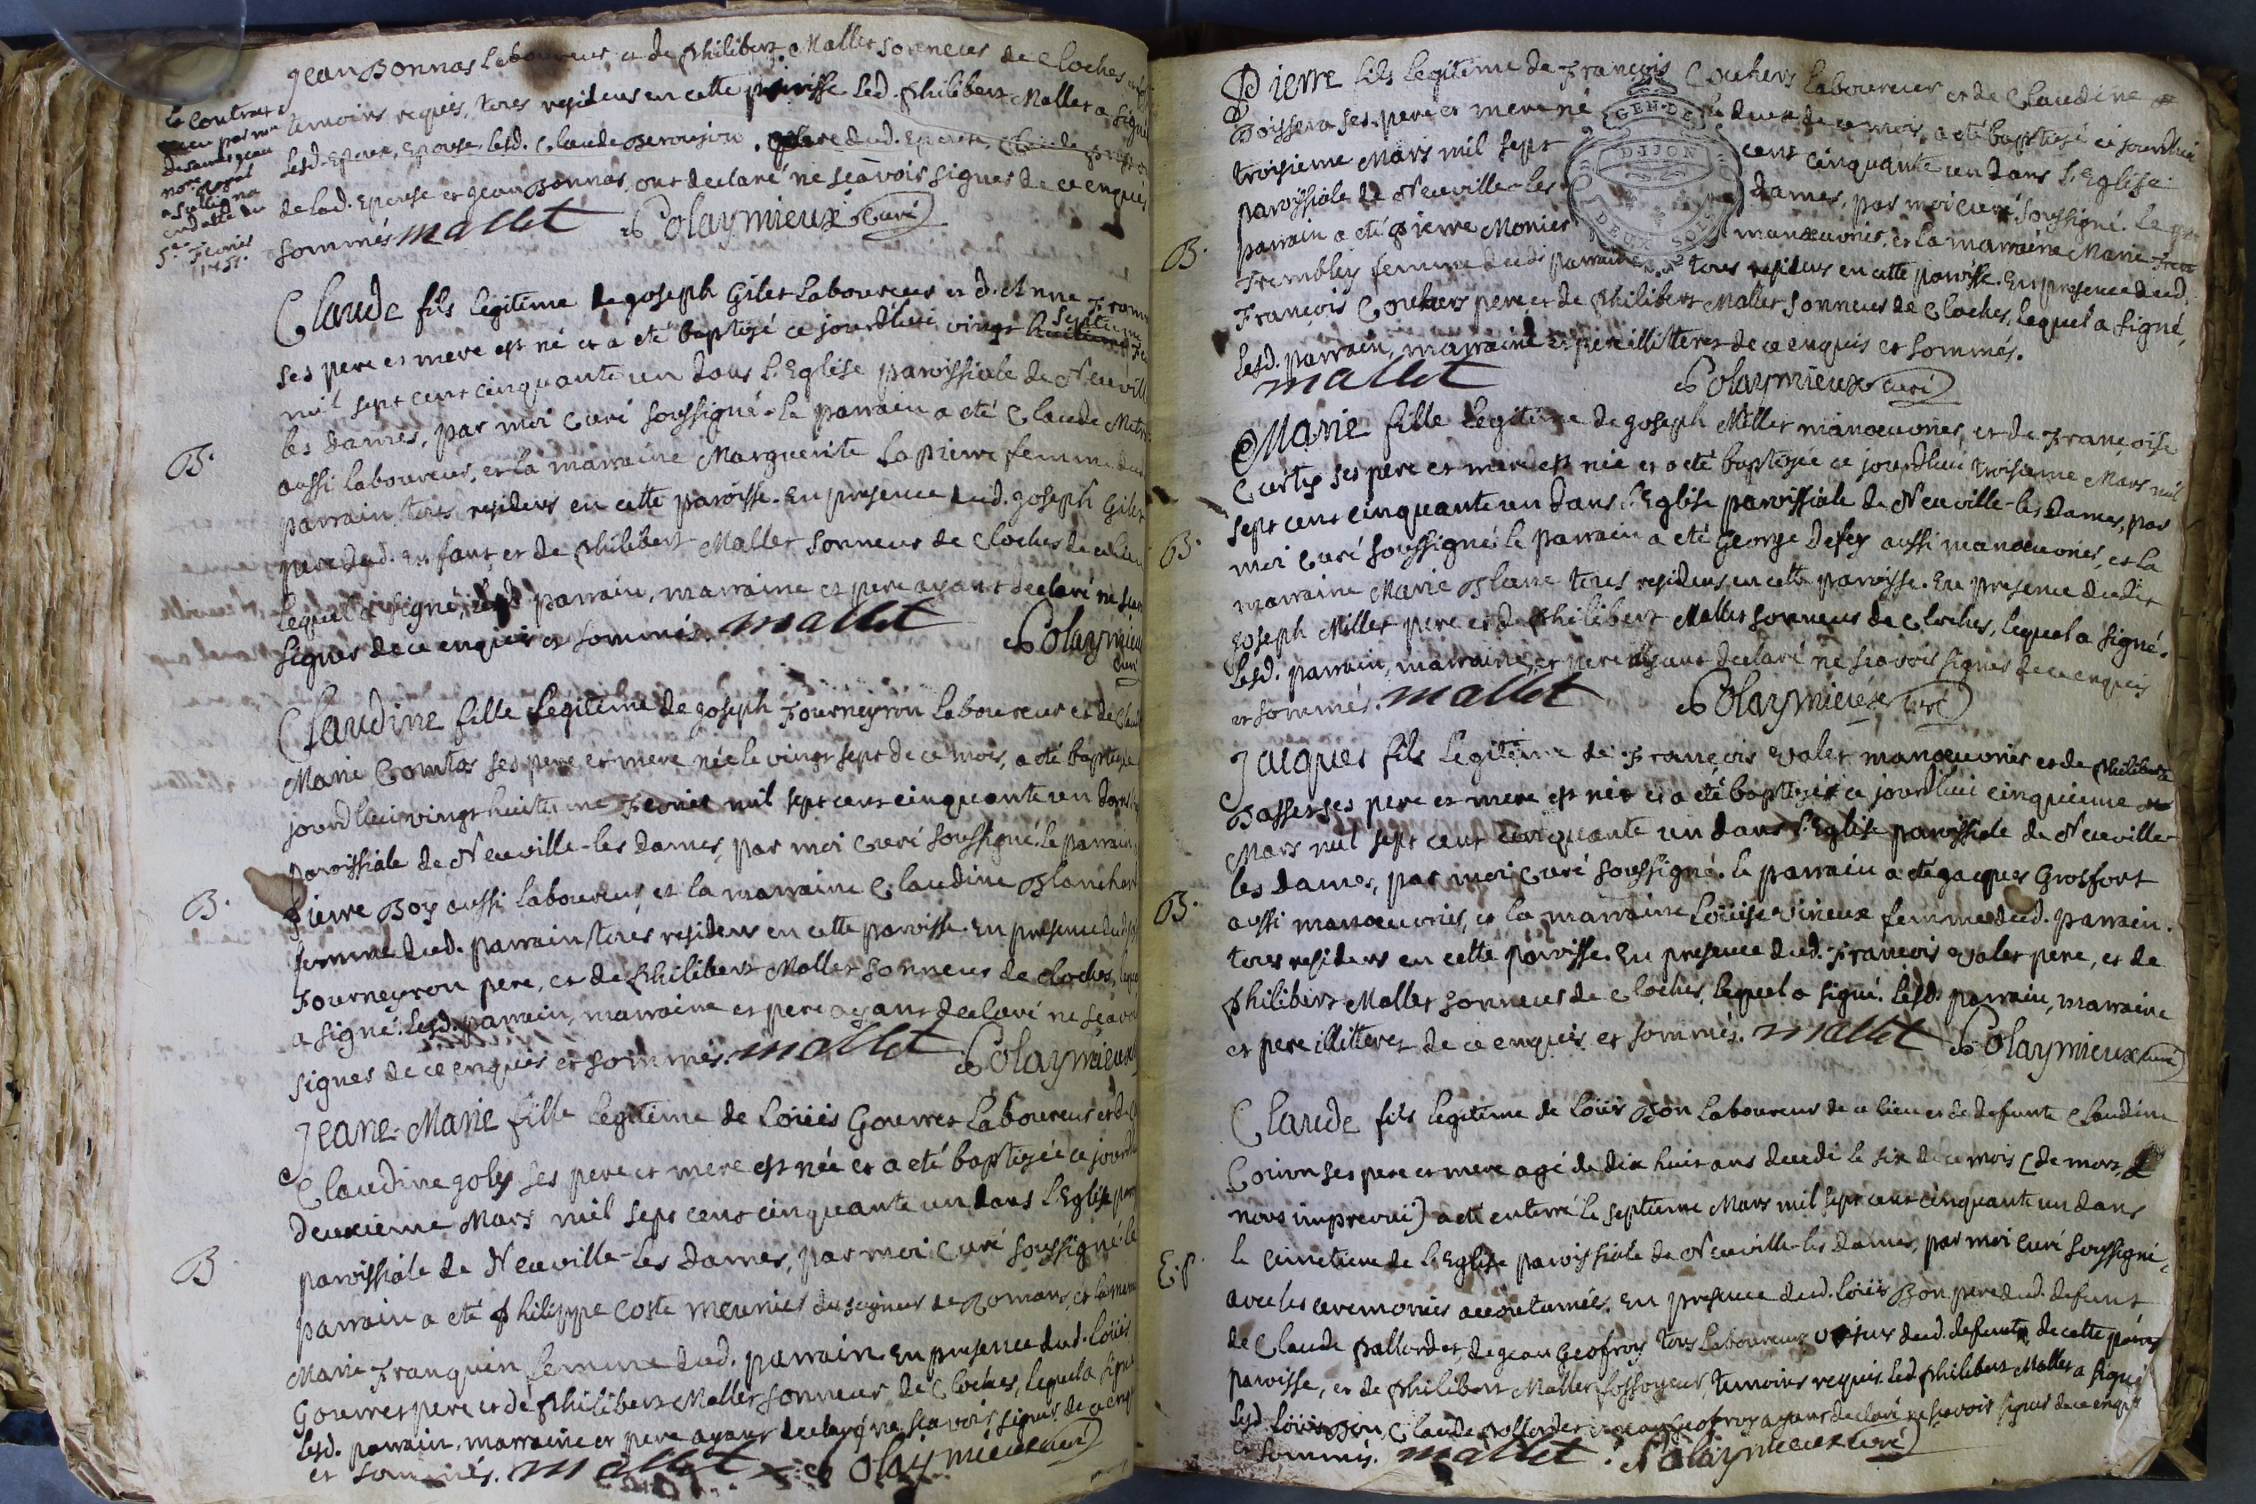 Jean Bonnas laboureur et de Philibert Mallet sonneur de Cloches
temoins requis, tous residens en cette paroisse led. Philibert Mallet a signé
lesd. Epoux, Epouse, lesd. Claude
de lad. Epouse et Jean Bonnas, ont declaré ne sçavoir signer de ce enquis
sommés mallet Polaymieux Curé
Le Contrat
par me
Jean
nore royal
a
en datte du
5e Fevrier
1751.
Claude fils legitime de Joseph Gilet Laboureur et d'Anne
septieme
ses pere et mere est né et a eté baptisé ce jourdhui vingt huitieme
mil sept cent cinquante un dans l'Eglise paroissiale de Neuville
les Dames, par moi Curé soussigné. le parrain a eté Claude
B.
aussi laboureur, et la marraine Marguerite Lapierre femme dud.
parrain tous residens en cette paroisse. En presence dud. Joseph Gilet
pere dud. enfant, et de Philibert Mallet sonneur de Cloches de ce lieu
lequel a signé, lesd. parrain, marraine et pere ayant declaré ne sca
signer de ce enquis et sommés. mallet Polaymieux
curé
Claudine fille legitime de Joseph Fourneyron laboureur et de
Marie Comtas ses pere et mere née le vingt sept de ce mois, a eté baptisée
jourdhui vingt huitieme Fevrier mil sept cent cinquante un dans
paroissiale de Neuville-les Dames, par moi Curé soussigné. le parrain
B.
Pierre Boy aussi laboureur et la marraine Claudine Blanchar
femme dud. parrain tous residens en cette paroisse. En presence dud.
Fourneyron pere, et de Philibert Mallet sonneur de cloches, lequel
a signé. lesd. parrain, marraine et pere ayant declaré ne sçavoi
signer de ce enquis et sommés. mallet Polaymieux
Jeane-Marie fille legitime de Loüis Gouvret Laboureur et de
Claudine Joly ses pere et mere est née et a eté baptisée ce jourdh
deuxieme Mars mil sept cent cinquante un dans l'Eglise
B
paroissiale de Neuville-les Dames, par moi Curé soussigné. le
parrain a eté Philippe Coste meunier du seigneur de Romans, et la
Marie Franquin femme dud. parrain. En presence dud. Loüis
Gouvret pere et de Philibert Mallet sonneur de Cloches, lequel a signé
lesd. parrain, marraine et pere ayant declaré ne scavoir signer de ce enq
et sommés. mallet Polaymieux curé
Pierre fils legitime de François Couhers laboureur et de Claudine
ses pere et mere né le deux de ce mois, a eté baptisé ce jourdhui
GEN·DE
DIJON
DEUX SOLS
troisieme Mars mil sept cent cinquante un dans l'Eglise
paroissiale de Neuville-les Dames, par moi curé soussigné. Le
B.
parrain a eté Pierre Monier manœuvrier, et la marraine Marie
Frembley femme dud. parrain tous residens en cette paroisse. En presence dud.
François Couhers pere, et de Philibert Mallet sonneur de Cloches, lequel a signé,
lesd. parrain, marraine et pere illitteres de ce enquis et sommés.
mallet Polaymieux curé
Marie fille legitime de Joseph Millet manœuvrier, et de Françoise
Curty ses pere et mere est née et a eté baptisée ce jourdhui troisieme Mars mil
sept cent cinquante un dans l'Eglise paroissiale de Neuville-les Dames, par
B.
moi Curé soussigné. le parrain a eté George Defey aussi manœuvrier, et la
marraine Marie Blanc tous residens en cette paroisse. En presence dudit
Joseph Millet pere et de Philibert Mallet sonneur de Cloches, lequel a signé.
lesd. parrain, marraine, et pere ayant declaré ne scavoir signer de ce enquis
et sommés. mallet Polaymieux curé
Jacques fils legitime de François Valet manœuvrier et de Philiberte
Basset ses pere et mere est né et a eté baptisé ce jourdhui cinquieme
Mars mil sept cent cinquante un dans l'Eglise paroissiale de Neuville
les Dames, par moi Curé soussigné. le parrain a eté Jacques Grosfort
B.
aussi manœuvrier, et la marraine Loüise Vireux femme dud. parrain.
tous residens en cette paroisse. En presence dud. François Valet pere, et de
Philibert Mallet sonneur de Cloches, lequel a signé. lesd. parrain, marraine
et pere illitteres de ce enquis et sommés. mallet Polaymieux curé
Claude fils legitime de Loüis Bon laboureur de ce lieu et de defunte Claudine
ses pere et mere agé de dix huit ans decedé le six de ce mois (de mort
imprevüe) a eté enterré le septieme Mars mil sept cent cinquante un dans
E.P.
le cimetiere de l'Eglise paroissiale de Neuville-les Dames, par moi curé soussigné,
avec les ceremonies accoutumées. En presence dud. Loüis Bon pere dud. defunt
de Claude Pallordet, de Jean Geofroy tous laboureurs dud. defunt de cette
paroisse, et de Philibert Mallet fossoyeur, temoins requis. led. Philibert Mallet a signé
lesd. Loüis Bon, Claude Pallordet et Jean Geofroy ayant declaré ne scavoir signer de ce enquis
et sommés. mallet Polaymieux curé